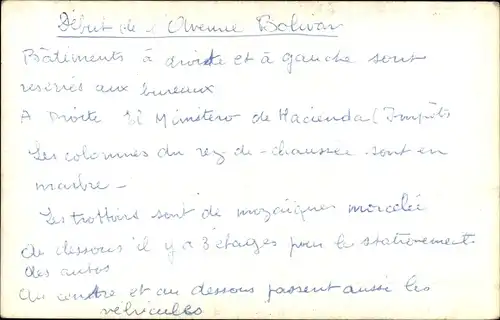 Début de l'Avenue Bolivar
Bâtiments à droite et à gauche sont
reservés aux bureaux
A Droite El Ministero de Hacienda (Impôts
Les colonnes du rez-de-chaussée sont en
marbre -
Les trottoirs sont de mozaïques
de dessous il y a 3 étages pour le stationnement
des autos
Au centre et au dessous passent aussi les
véhicules